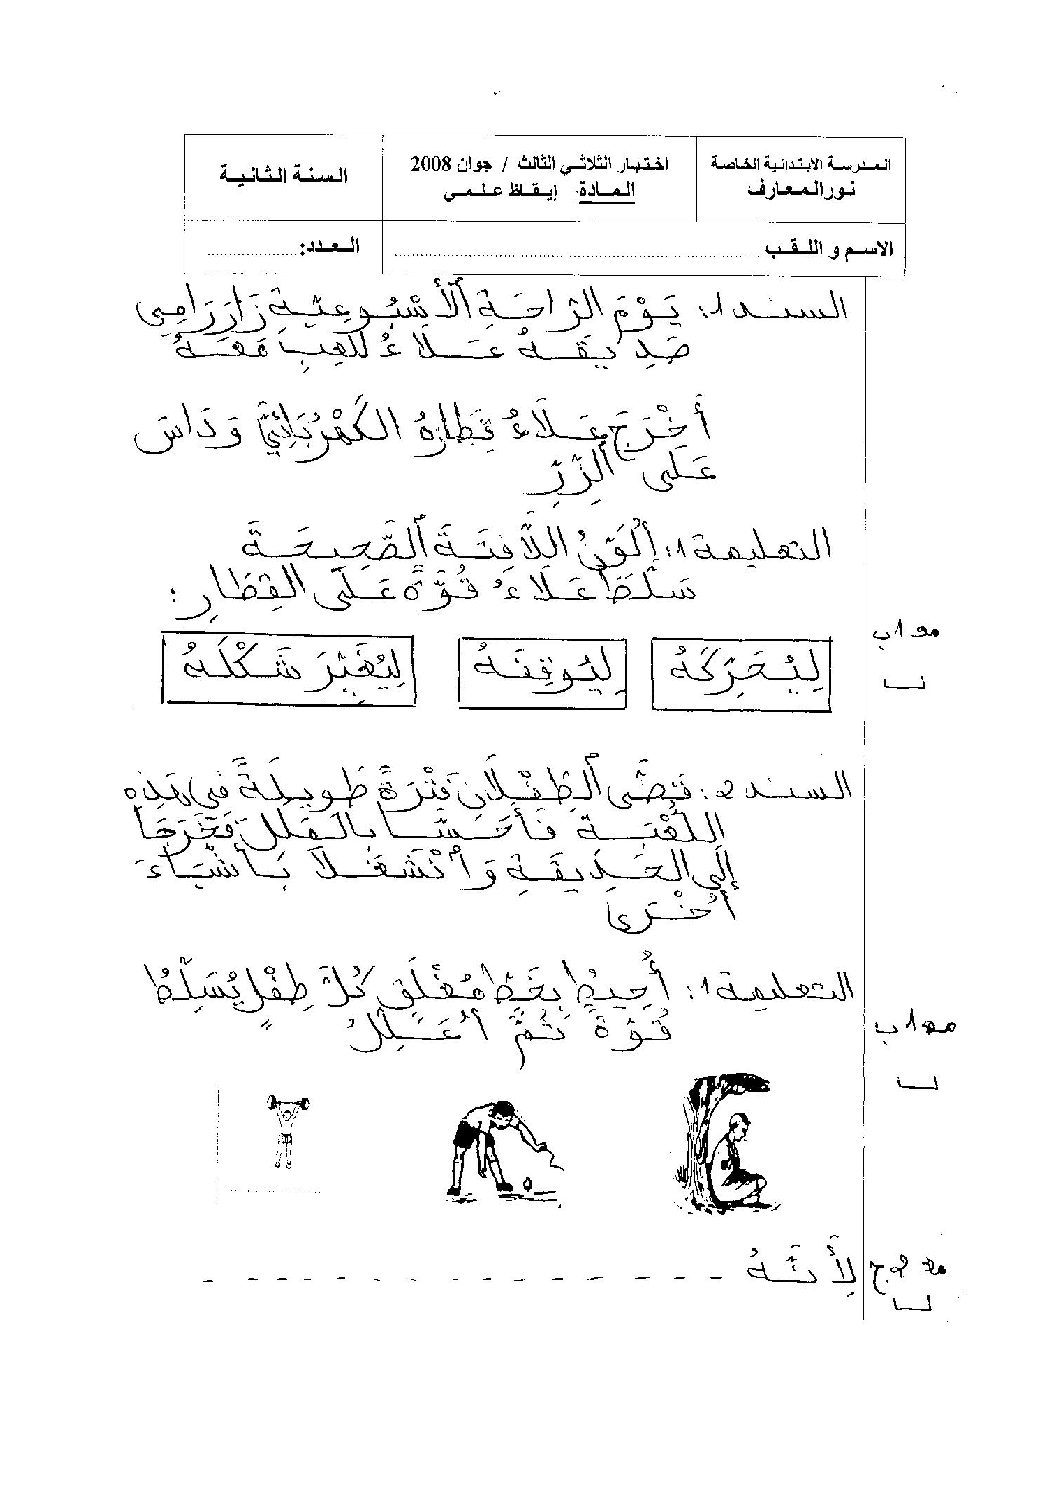 المدرسة الابتدائية الخاصة
نور المعارف
اختبار الثلاثي الثالث / جوان 2008
المادة: إيقاظ علمي
السنة الثانية
الاسم و اللقب ........................................
العدد: ....................
السند 1: يَوْمَ الرَّاحَةِ الْأُسْبُوعِيَّةِ زَارَ رَامِي
صَدِيقَهُ عَلَاءُ لِلَّعِبِ مَعَهُ
أَخْرَجَ عَلَاءُ قِطَارَهُ الكَهْرُبَائِيَّ وَدَاسَ
عَلَى الزِّرِّ
التعليمة 1: أُلَوِّنُ اللَّافِتَةَ الصَّحِيحَةَ
سَلَّطَ عَلَاءُ قُوَّةً عَلَى القِطَارِ:
لِيُحَرِّكَهُ
لِيُوقِفَهُ
لِيُغَيِّرَ شَكْلَهُ
مع 1 ب
السند 2: قَضَّى الطِّفْلَانِ فَتْرَةً طَوِيلَةً فِي هَذِهِ
اللُّعْبَةِ فَأَحَسَّا بِالمَلَلِ فَخَرَجَا
إِلَى الحَدِيقَةِ وَانْشَغَلَا بِأَشْيَاءَ
أُخْرَى
التعليمة 1: أُحِيطُ بِخَطٍّ مُغْلَقٍ كُلَّ طِفْلٍ يُسَلِّطُ
قُوَّةً ثُمَّ أُعَلِّلُ
مع 1 ب
لِأَنَّهُ - - - - - - - - - - - - - - - -
مع 2 ج